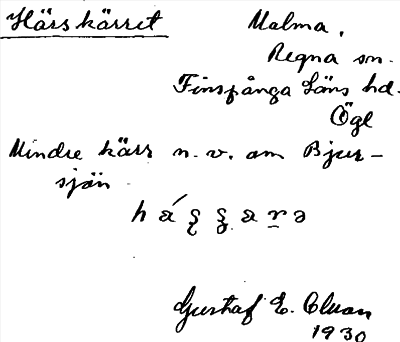 Härskärret
Malma,
Regna sn.
Finspånga läns hd.
Ögl
Mindre kärr n. v. om Bjur-
sjön
Gustaf E.
1930